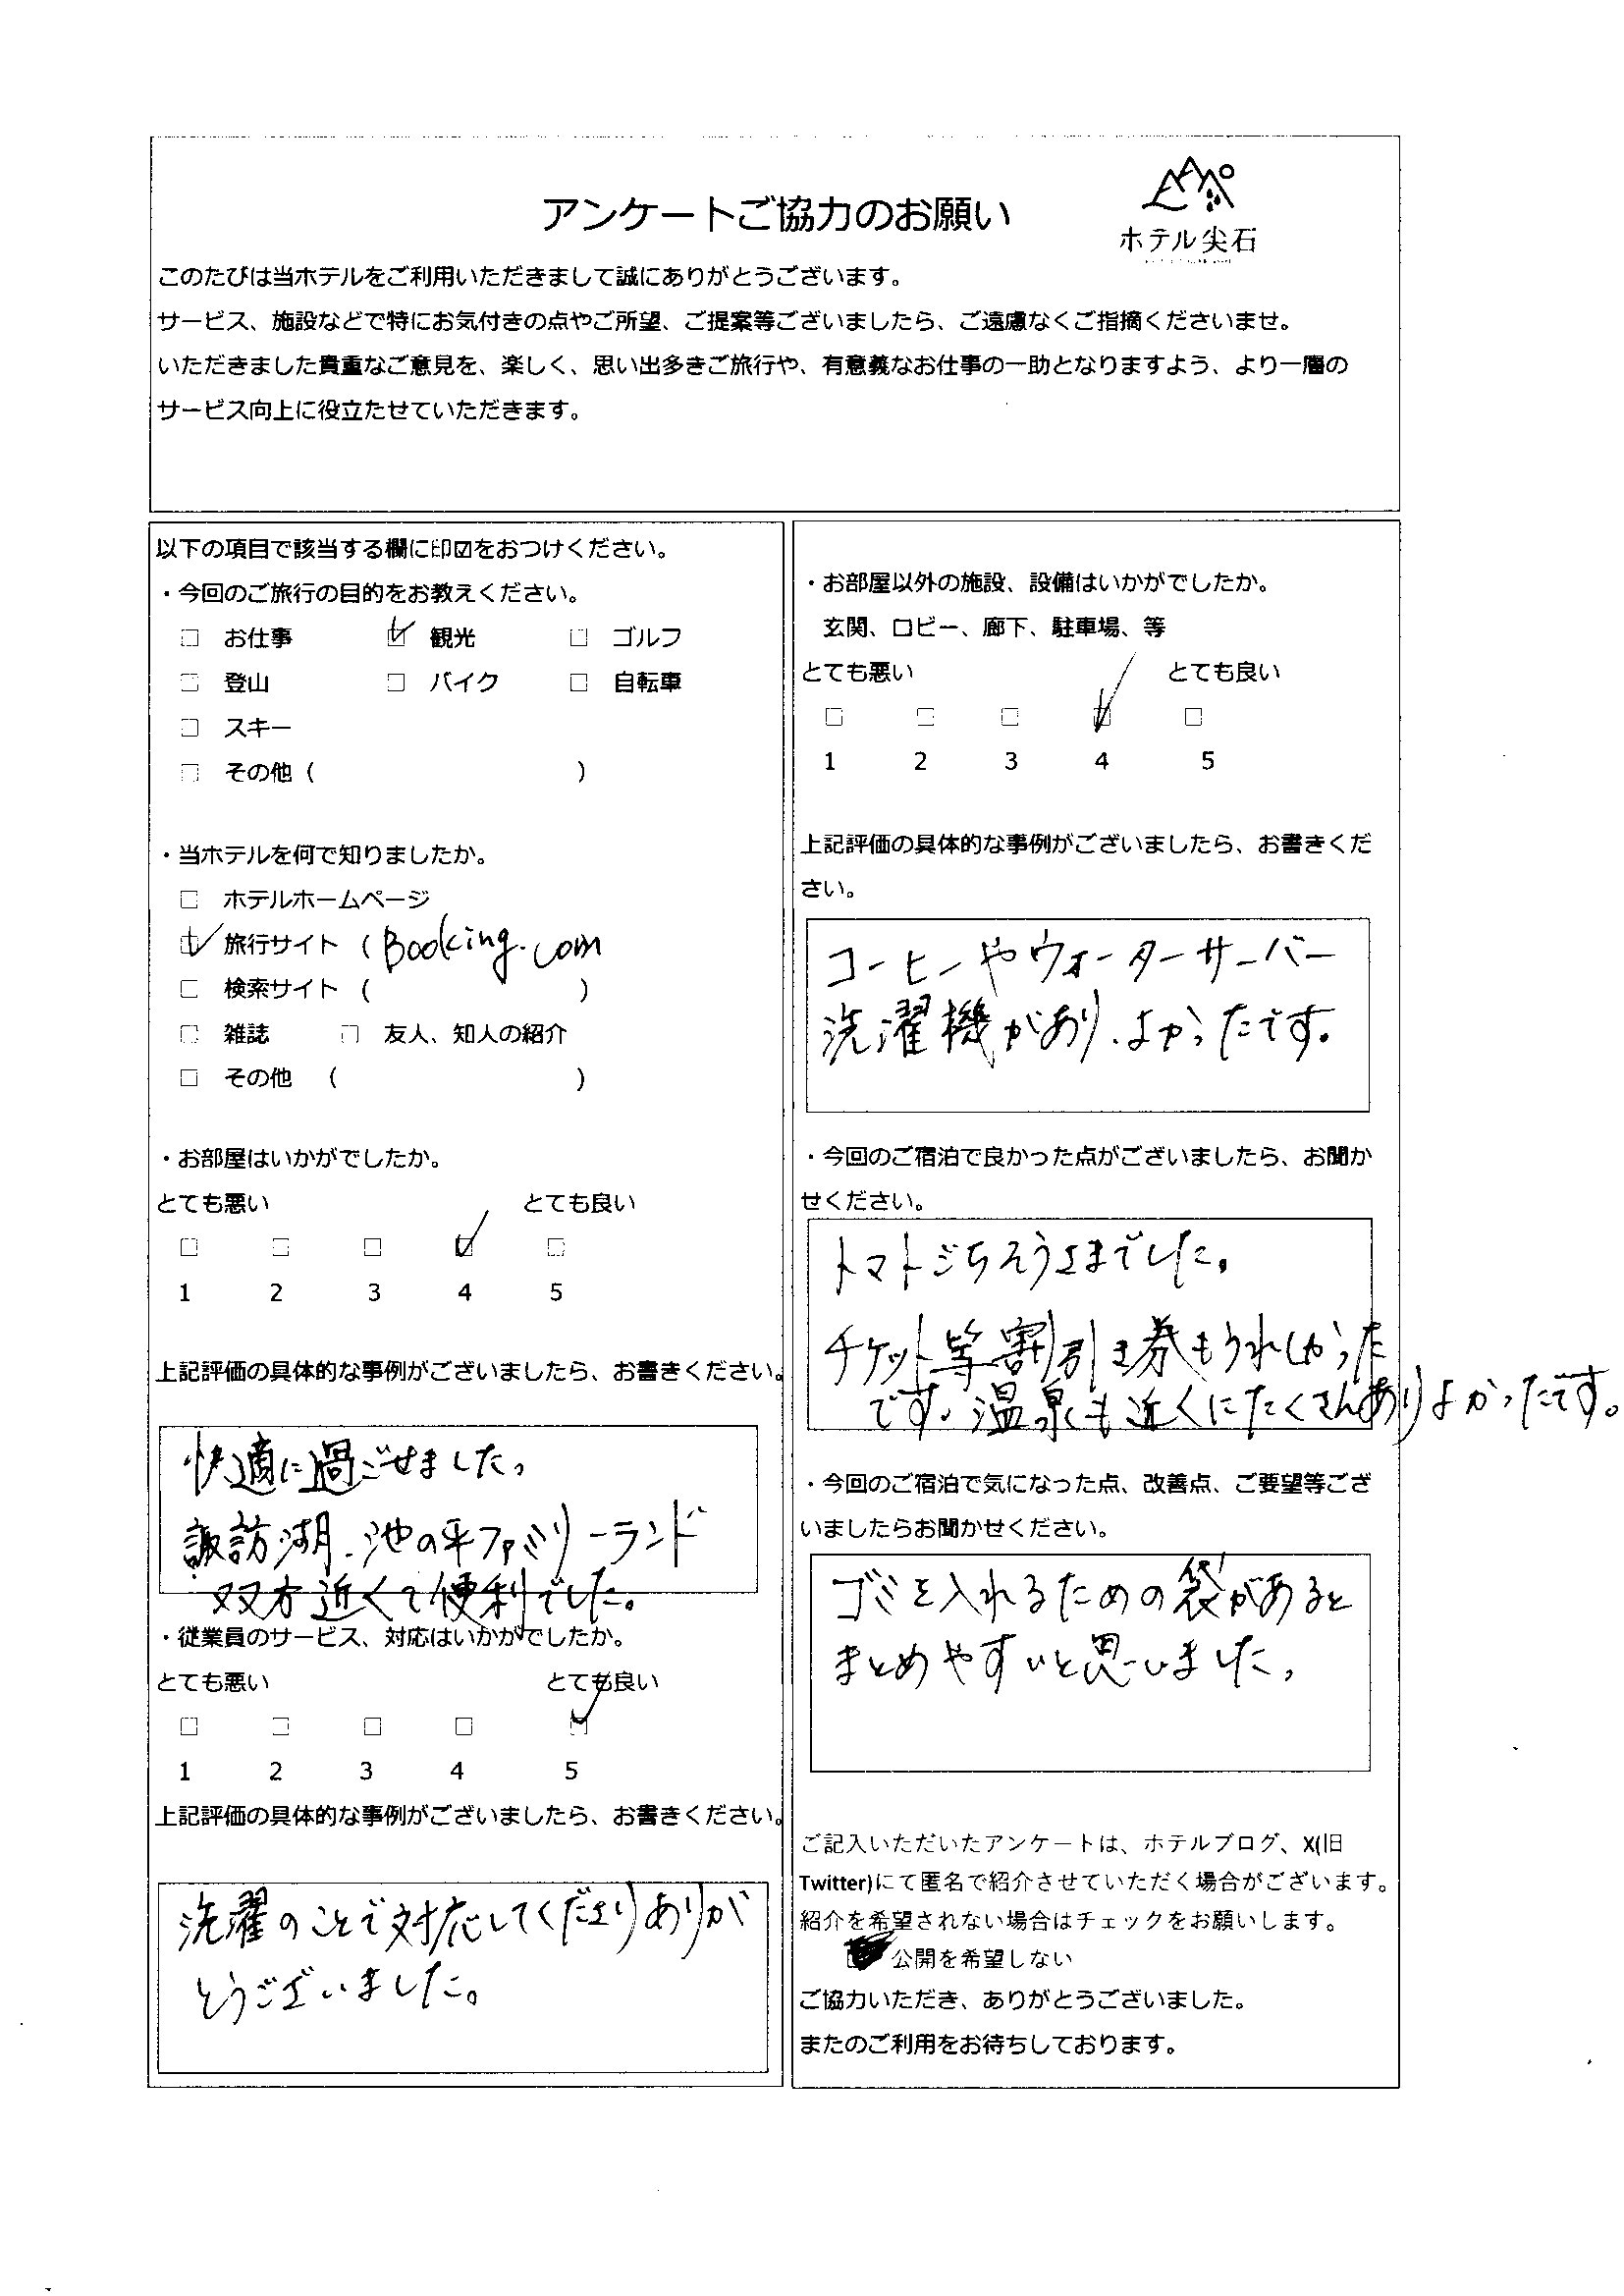 アンケートご協力のお願い
ホテル尖石
このたびは当ホテルをご利用いただきまして誠にありがとうございます。
サービス、施設などで特にお気付きの点やご所望、ご提案等ございましたら、ご遠慮なくご指摘くださいませ。
いただきました貴重なご意見を、楽しく、思い出多きご旅行や、有意義なお仕事の一助となりますよう、より一層の
サービス向上に役立たせていただきます。
以下の項目で該当する欄に印☑をおつけください。
・今回のご旅行の目的をお教えください。
□ お仕事 ☑ 観光 □ ゴルフ
□ 登山 □ バイク □ 自転車
□ スキー
□ その他 ( )
・当ホテルを何で知りましたか。
□ ホテルホームページ
☑ 旅行サイト ( Booking.com
□ 検索サイト ( )
□ 雑誌 □ 友人、知人の紹介
□ その他 ( )
・お部屋はいかがでしたか。
とても悪い とても良い
□ □ □ ☑ □
1 2 3 4 5
上記評価の具体的な事例がございましたら、お書きください。
快適に過ごせました。
諏訪湖、池の平ファミリーランド
双方近くて便利でした。
・従業員のサービス、対応はいかがでしたか。
とても悪い とても良い
□ □ □ □ ☑
1 2 3 4 5
上記評価の具体的な事例がございましたら、お書きください。
洗濯のことで対応してくださりありが
とうございました。
・お部屋以外の施設、設備はいかがでしたか。
玄関、ロビー、廊下、駐車場、等
とても悪い とても良い
□ □ □ ☑ □
1 2 3 4 5
上記評価の具体的な事例がございましたら、お書きくだ
さい。
コーヒーやウォーターサーバー
洗濯機があり、よかったです。
・今回のご宿泊で良かった点がございましたら、お聞か
せください。
トマトごちそうさまでした。
チケット等割引き券もうれしかった
です。温泉も近くにたくさんありよかったです。
・今回のご宿泊で気になった点、改善点、ご要望等ござ
いましたらお聞かせください。
ゴミを入れるための袋があると
まとめやすいと思いました。
ご記入いただいたアンケートは、ホテルブログ、X(旧
Twitter)にて匿名で紹介させていただく場合がございます。
紹介を希望されない場合はチェックをお願いします。
公開を希望しない
ご協力いただき、ありがとうございました。
またのご利用をお待ちしております。